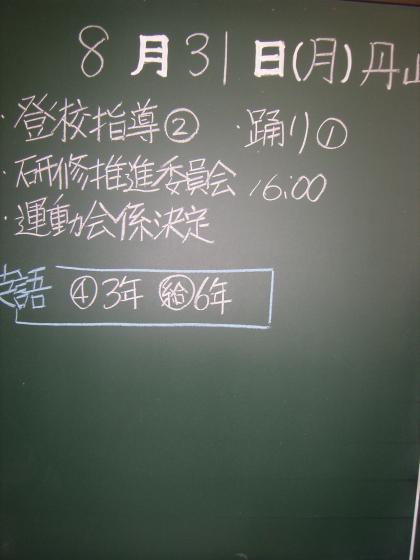 8月31日(月)丹山
・登校指導② ・踊り①
・研修推進委員会 16:00
・運動会係決定
英語 ④3年 ㊗6年